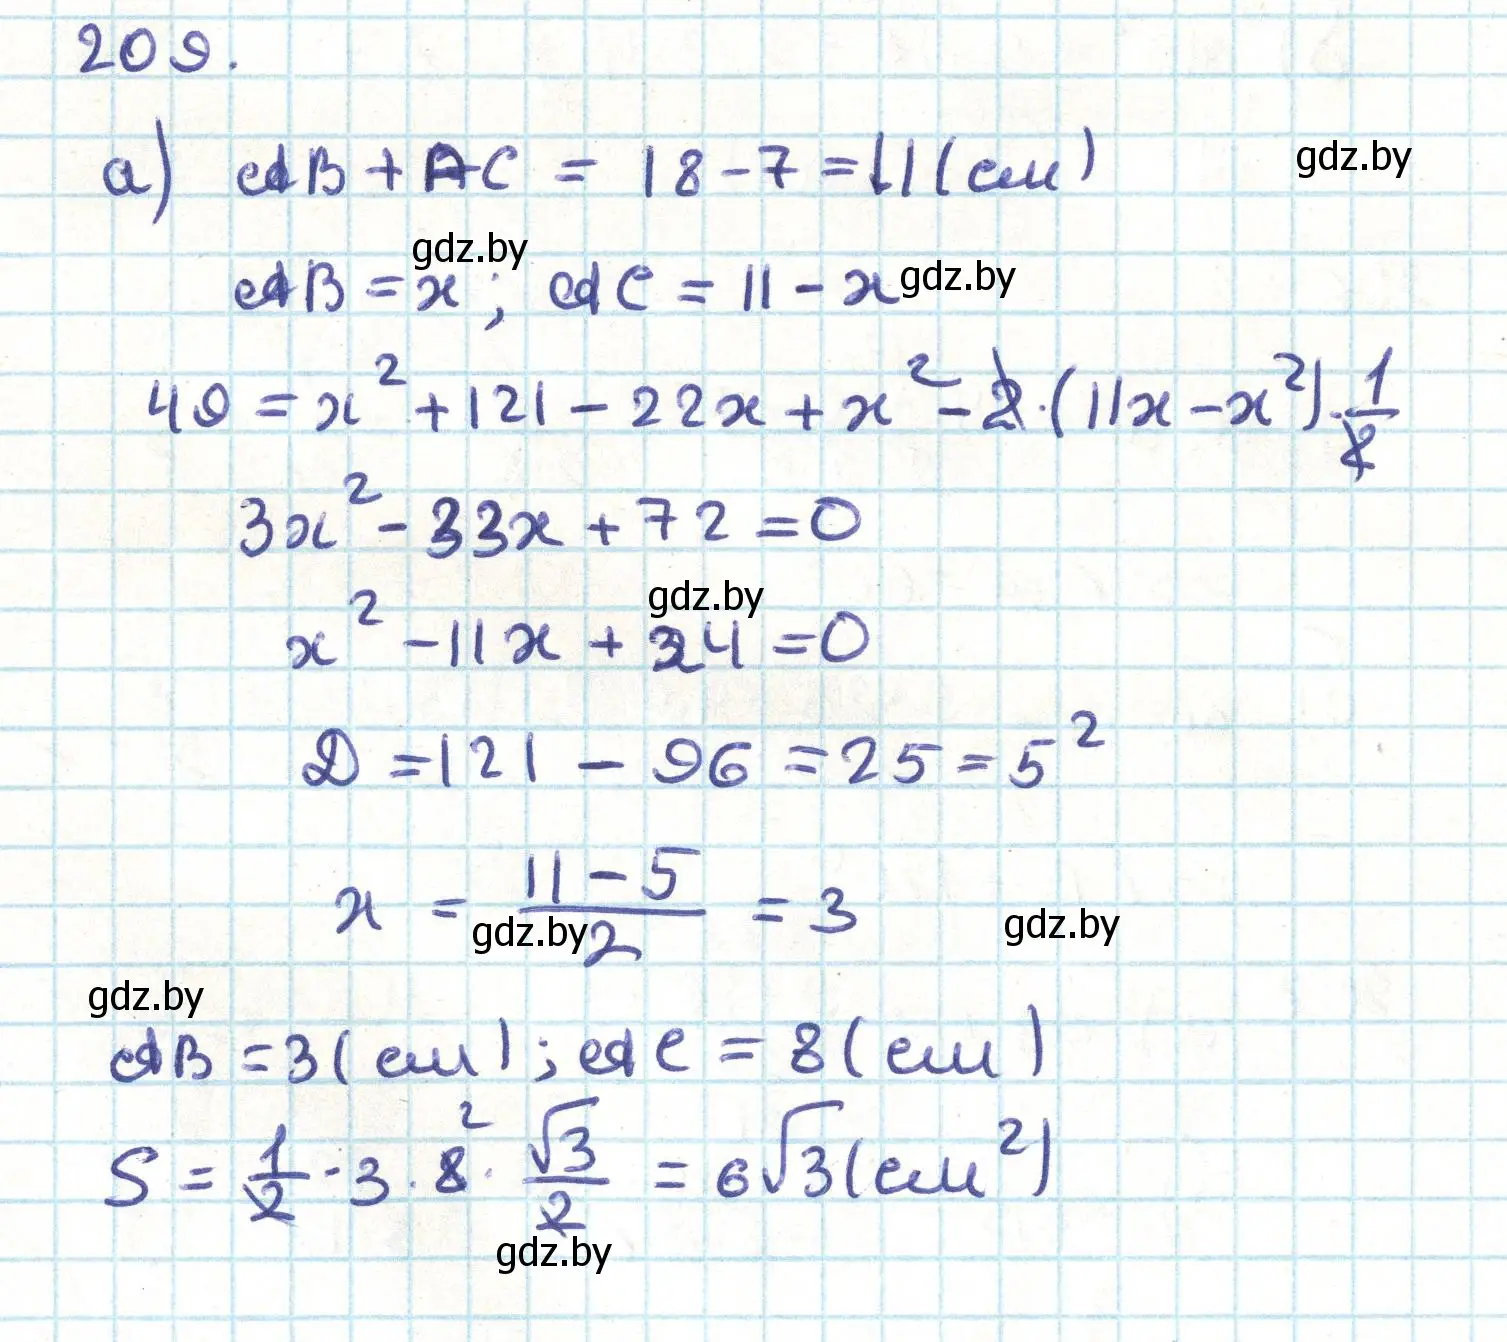 209.
а) AB + AC = 18 - 7 = 11 (см)
gdz.by
gdz.by
AB = x; AC = 11 - x
gdz.by
49 = x² + 121 - 22x + x² - 2·(11x - x²)·1/2
3x² - 33x + 72 = 0
gdz.by
x² - 11x + 24 = 0
D = 121 - 96 = 25 = 5²
x = (11 - 5)/2 = 3
gdz.by
gdz.by
gdz.by
AB = 3 (см); AC = 8 (см)
S = 1/2 · 3 · 8 ² · √3/2 = 6√3 (см²)
gdz.by